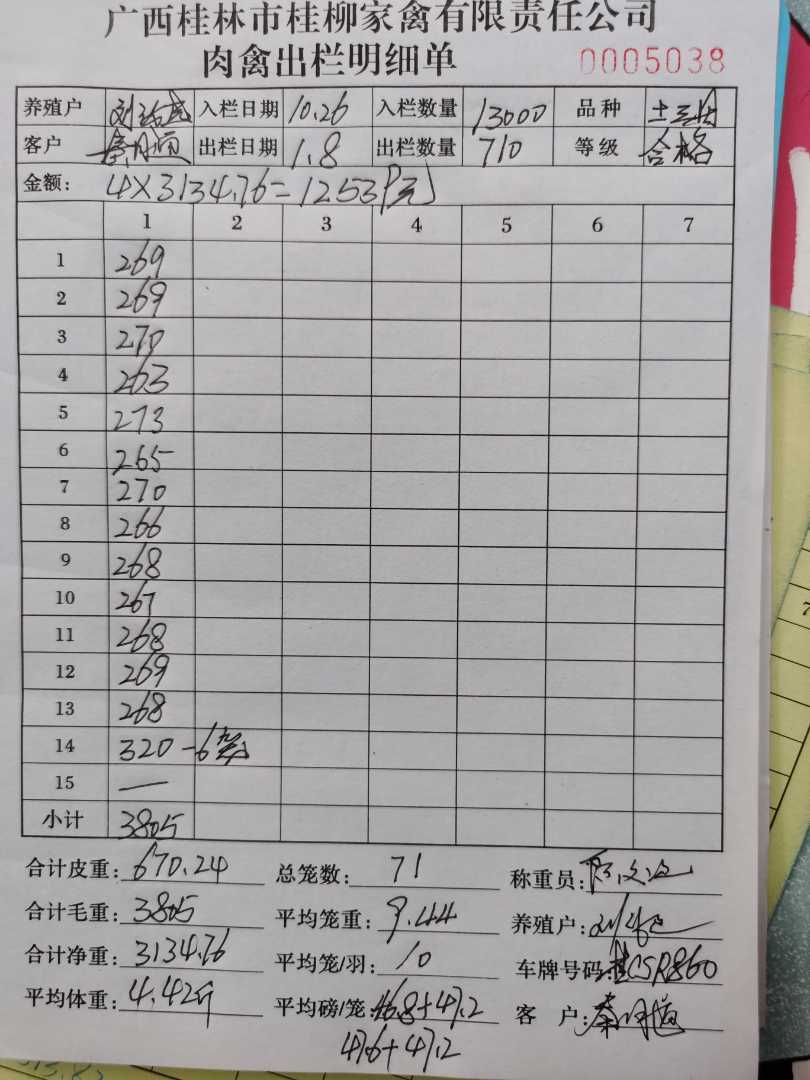 广西桂林市桂柳家禽有限责任公司
肉禽出栏明细单 0005038
养殖户 刘 入栏日期 10.26 入栏数量 13000 品种 土
客户 秦月恒 出栏日期 1.8 出栏数量 710 等级 合格
金额: 4×3134.76=12539元
1 2 3 4 5 6 7
1 269
2 269
3 270
4 263
5 273
6 265
7 270
8 266
9 268
10 267
11 268
12 269
13 268
14 320 -6笼
15 —
小计 3805
合计皮重: 670.24 总笼数: 71 称重员:
合计毛重: 3805 平均笼重: 9.44 养殖户:
合计净重: 3134.76 平均笼/羽: 10 车牌号码: 桂CSR860
平均体重: 4.42斤 平均磅/笼: 46.8+47.2 客 户: 秦月恒
47.6+47.2
313.82